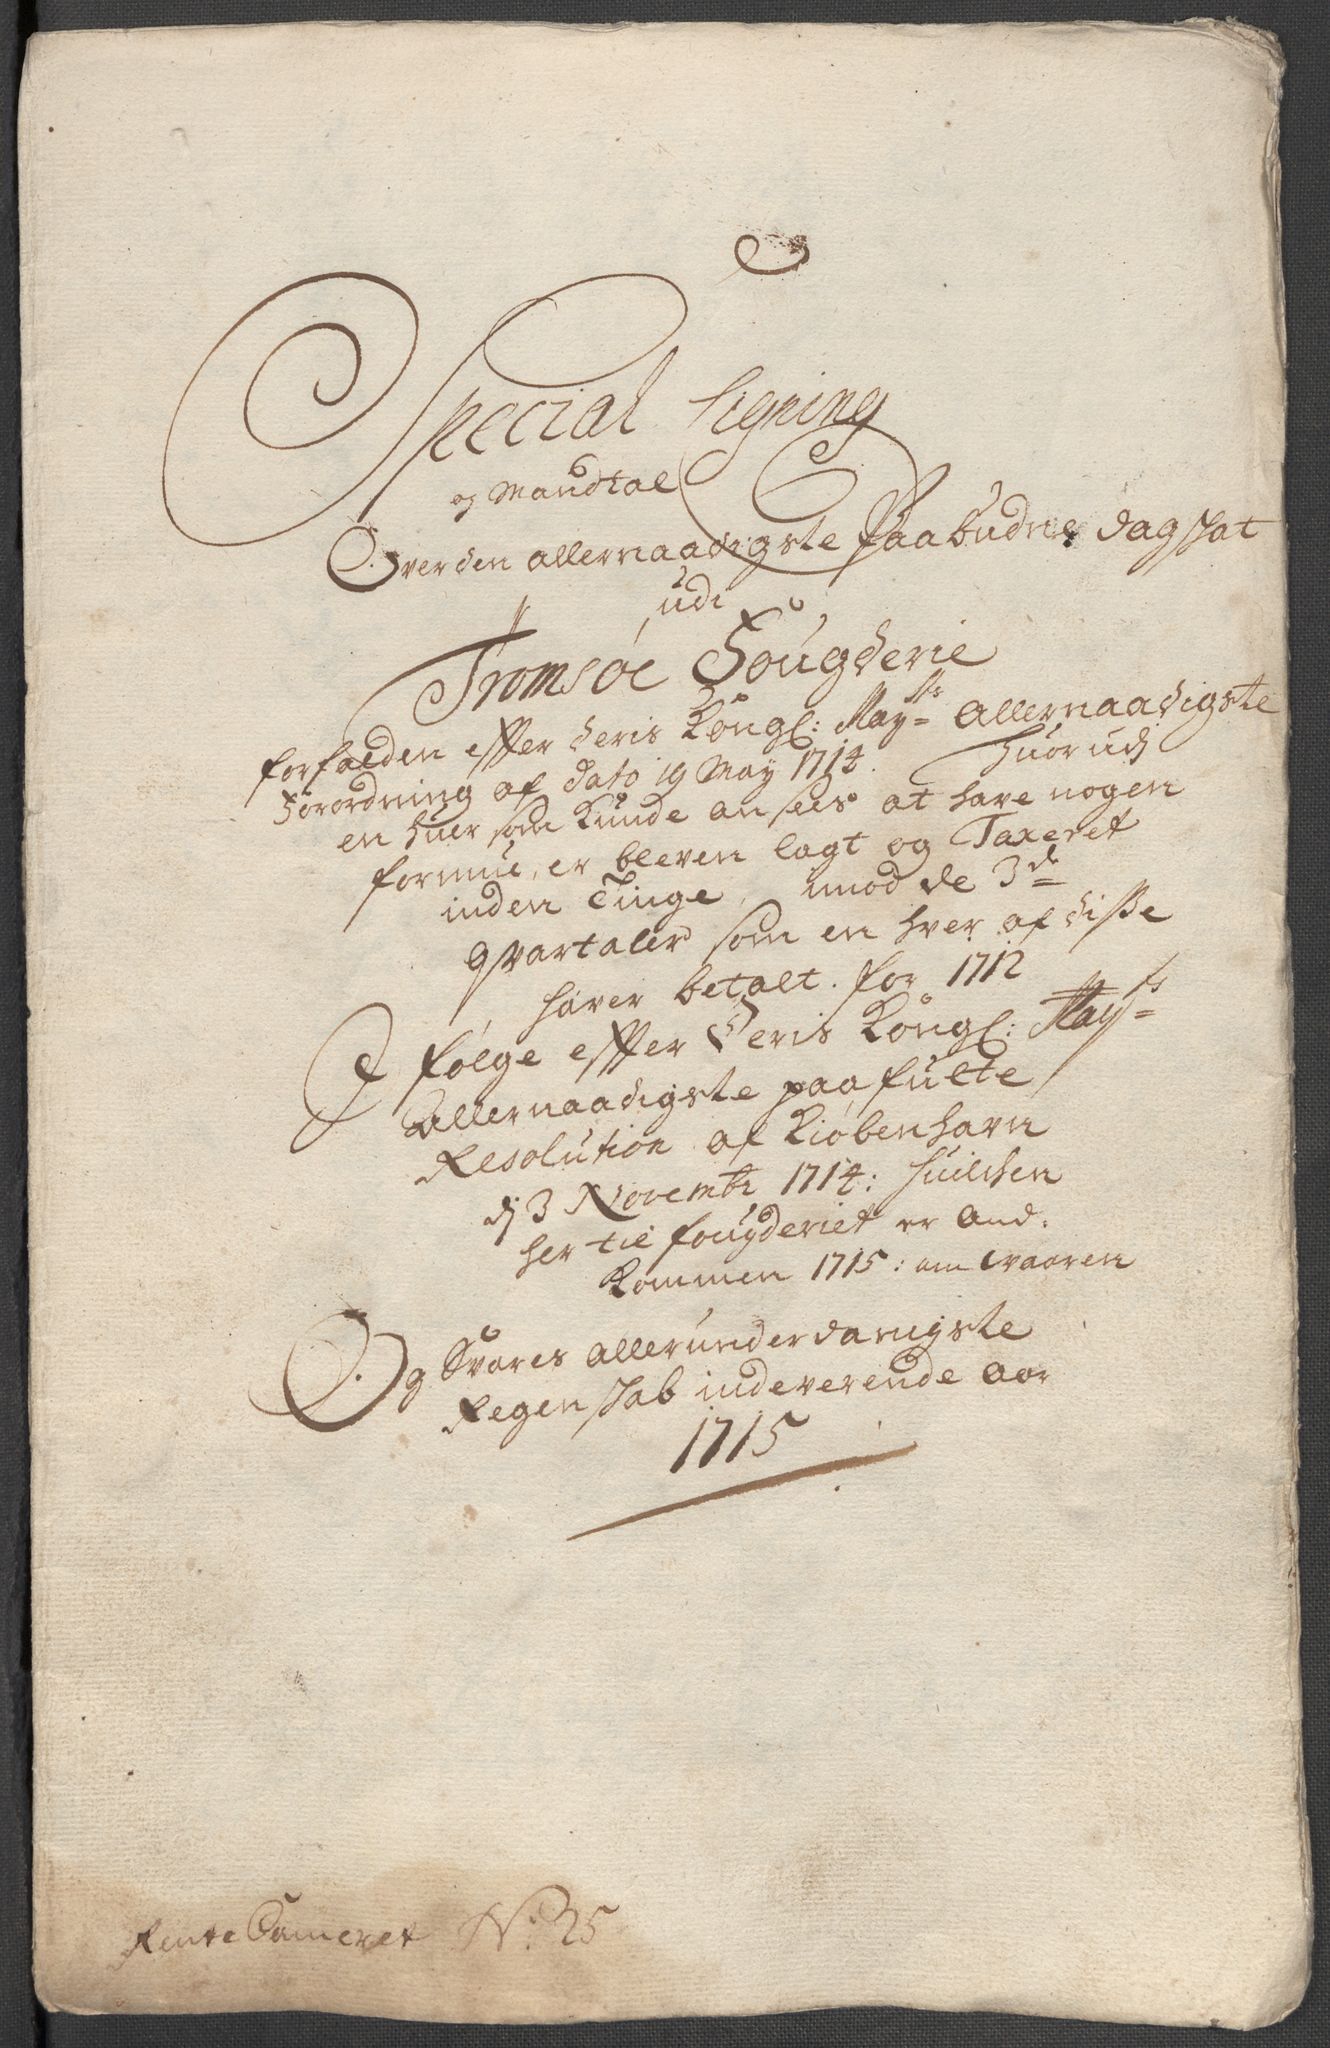 Special Ligning
og Mandtal
Over den allernaadigste Paabudne dagskat
udi
Tromsøe Fougderie
forfalden efter deris Kongl: May^ts Allernaadigste
Forordning af Dato 19 May 1714. Huorudj
en huer som Kunde ansees at have nogen
formue, er bleven lagt og Taxeret
inden Tinge, imod de 3^de
qvartaler som en hver af disse
haver betalt. for 1712
I følge efter Deris Kongl: May^ts
Allernaadigste paafulte
Resolution af Kiøbenhavn
dj 3 Novembr 1714: huilchen
her til fougderiet er And.
Kommen 1715: om vaaren
Og Svares allerunderdanigste
Regenskab indeverende aar
1715
RenteCameret No 25